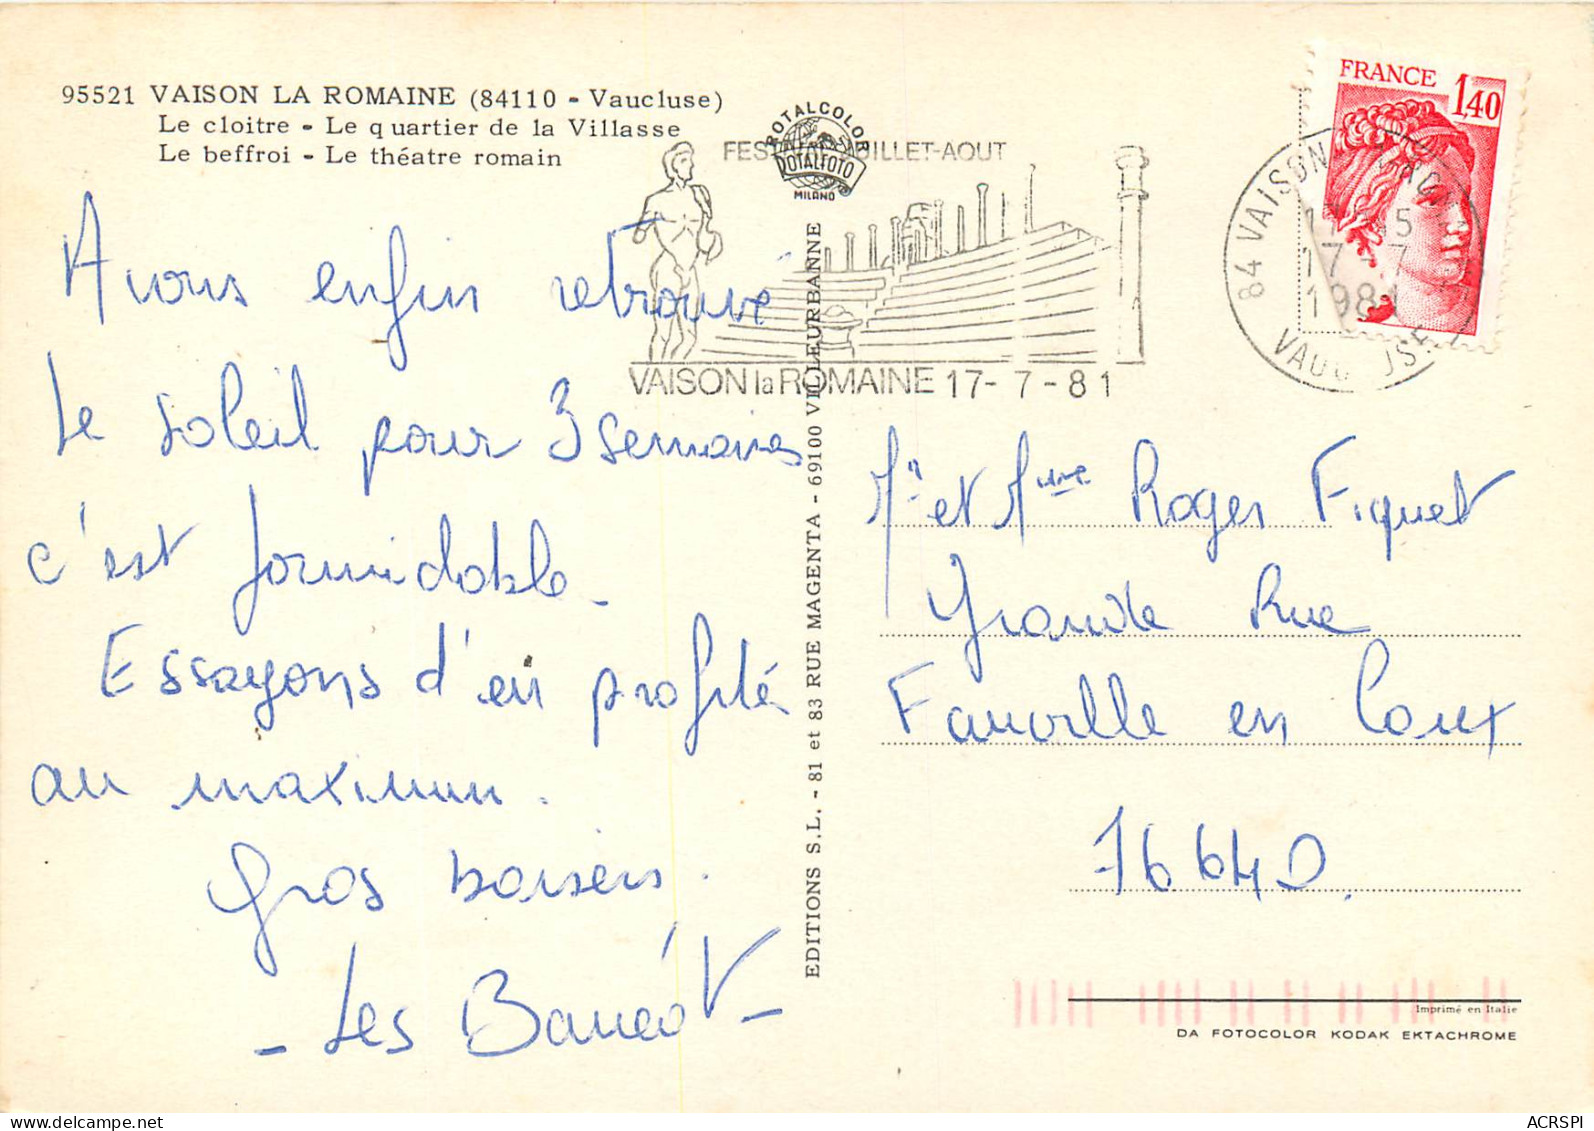 95521 VAISON LA ROMAINE (84110 - Vaucluse)
Le cloitre - Le quartier de la Villasse
Le beffroi - Le théatre romain
ROTALCOLOR
ROTALFOTO
MILANO
JUILLET-AOUT
VAISON la ROMAINE 17-7-81
FRANCE 1,40
84 VAISON
17-7
1981
VAUCLUSE
Avons enfin retrouvé
le soleil pour 3 semaines
c'est formidable -
Essayons d'en profité
au maximum.
Gros baisers.
- Les
EDITIONS S.L. - 81 et 83 RUE MAGENTA - 69100 VILLEURBANNE
Mr et Mme Roger Fiquet
Grande Rue
Fauville en Caux
76640.
Imprimé en Italie
DA FOTOCOLOR KODAK EKTACHROME
ACRSPI